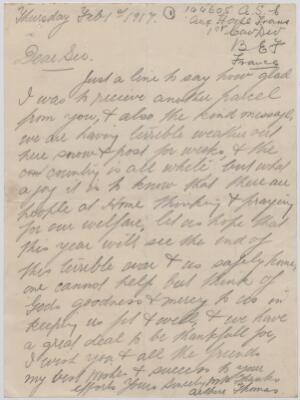 Thursday Feb 1st 1917. 144605 A.S.C
Aux Horse Trans
1st Cav Div
B.E.F
France
Dear Sir.
Just a line to say how glad
I was to receive another parcel
from you, & also the kind message,
we are having terrible weather out
here snow & frost for weeks & the
country is all white but what
a joy it is to know that there are
people at Home thinking & praying
for our welfare, let us hope that
this year will see the end of
this terrible war & us safely home,
one cannot help but think of
Gods goodness & mercy to us in
keeping us fit & well & we have
a great deal to be thankfull for,
I wish you & all the friends
my best wishes & success to your
efforts Yours Sincerely with thanks
Arthur Thomas